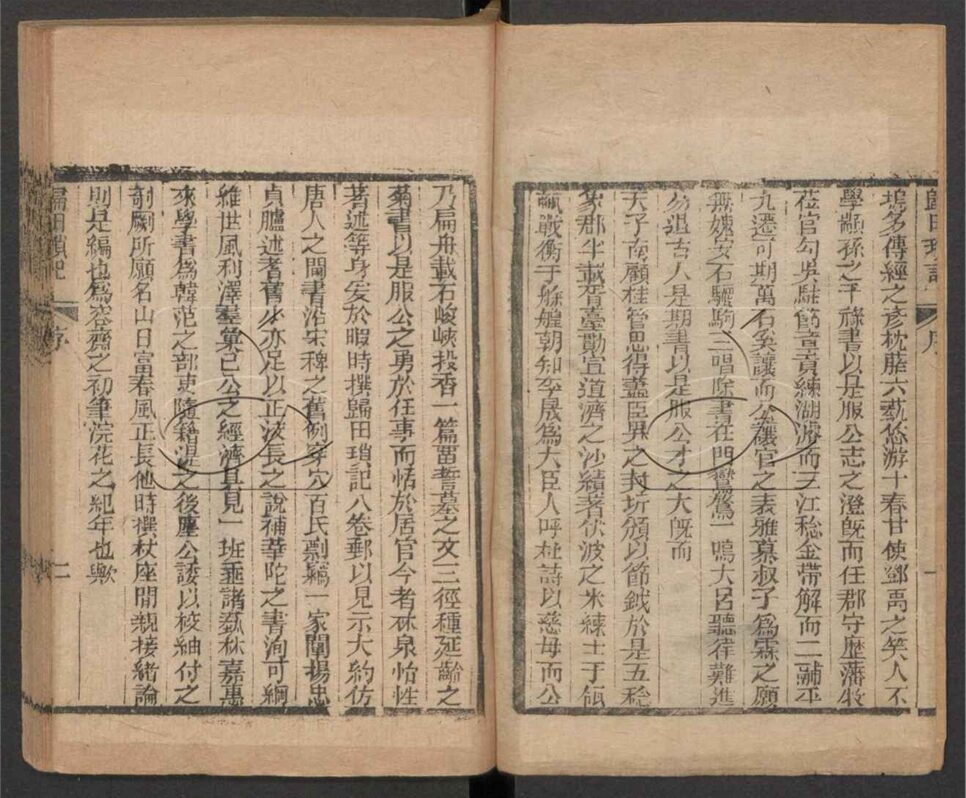 歸田瑣記
序
塢多傳經之彥枕葄六藝悠游十春甘使鄧禹之笑人不
學顓孫之干祿書以是服公志之澄旣而任郡守歷藩牧
蒞官句吳駐節章貢練湖濬而三江稔金帶解而二鬴平
九遷可期萬石奚讓而公 官之表雅慕叔子爲霖之願
無媿安石驪駒三唱除書在門鸞鶱一鳴大呂聽律難進
易退古人是期書以是服公才之大旣而
天子南顧桂管思得藎臣畀之封圻頒以節鉞於是五稔
象郡半載 臺勳宣道濟之沙績著伏波之米練土于
于艅艎朝知李晟爲大臣人呼杜詩以慈母而公
乃扁舟載石峻峽投香一篇留誓墓之文三徑種延齡之
菊書以是服公之勇於任事而恬於居官今者林泉怡性
著述等身爰於暇時撰歸田瑣記八卷郵以見示大約仿
唐人之開書沿宋稗之舊例穿穴百氏剽竊一家闡揚忠
貞臚述耆舊少亦足以正波長之說補華陀之書洵可綱
維世風利澤羣彙已公之經濟具見一班乘諸藝林嘉惠
來學書爲韓范之部吏隨籍湜之後塵公諉以校紬付之
剞劂所願名山日富春風正長他時撰杖座閒親接緒論
則是編也爲容齋之初筆浣花之紀年也歟
歸田瑣記
序
二